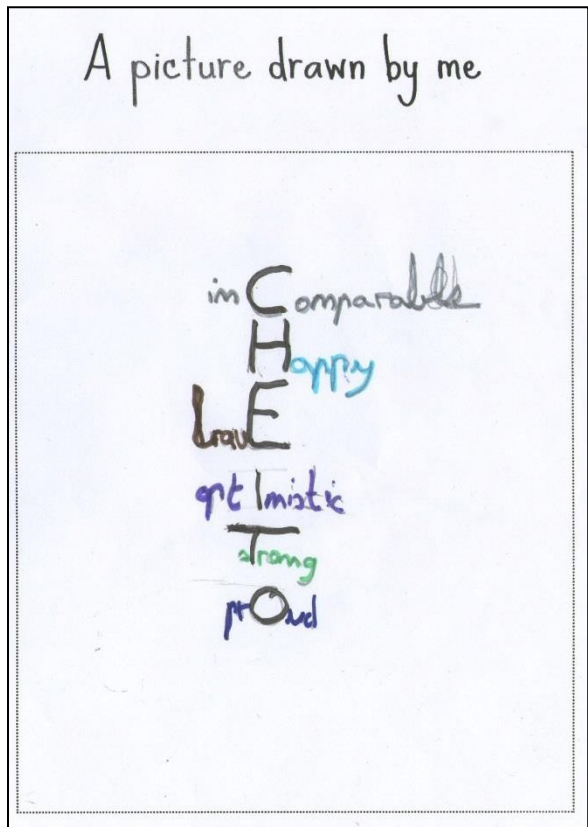 A picture drawn by me
inComparable
Happy
bravE
optImistic
sTrong
prOud